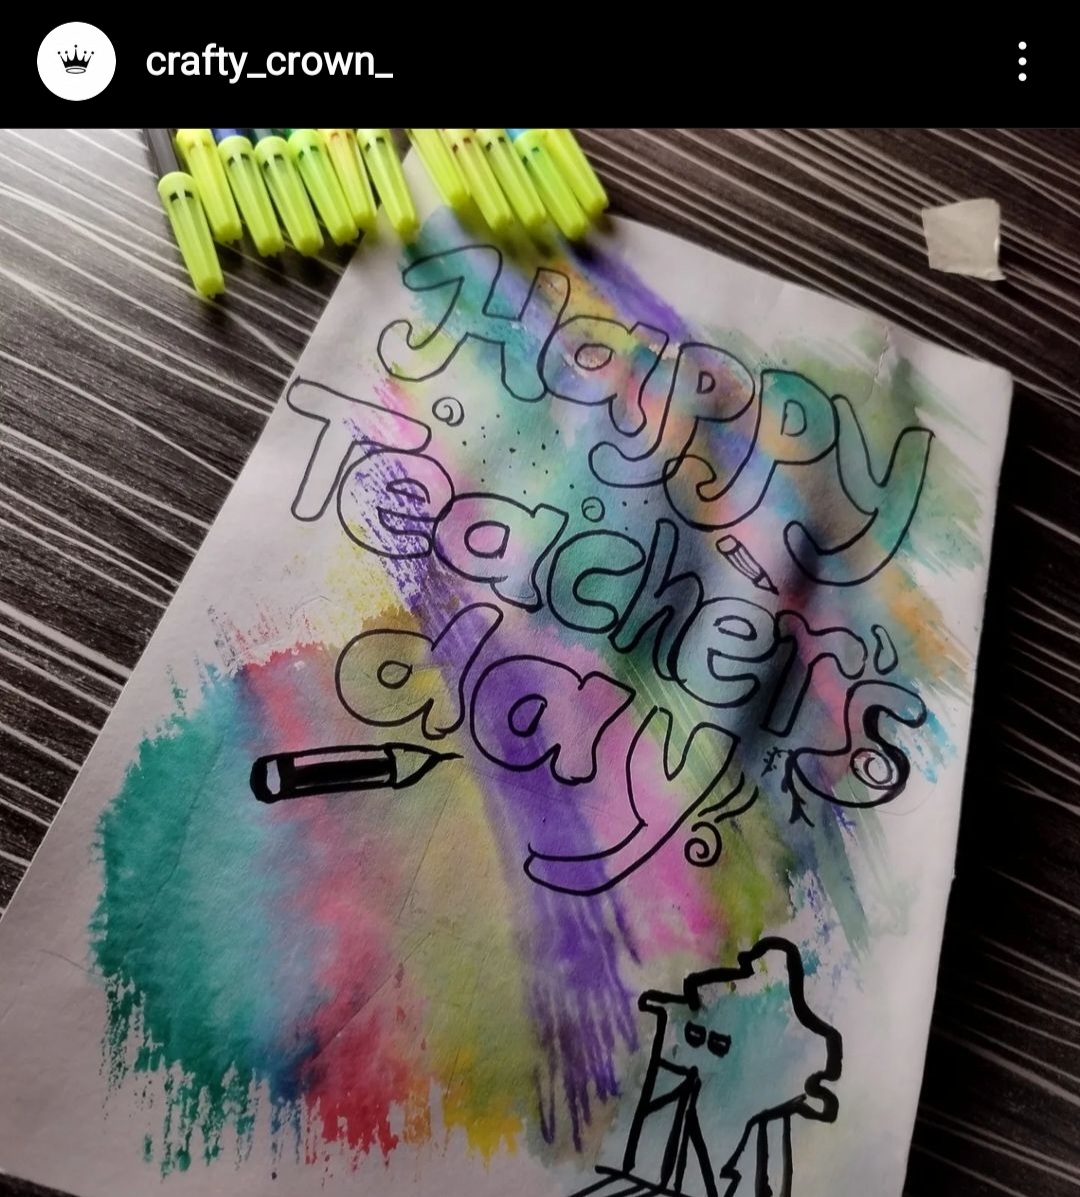 crafty_crown_
Happy
Teacher's
day